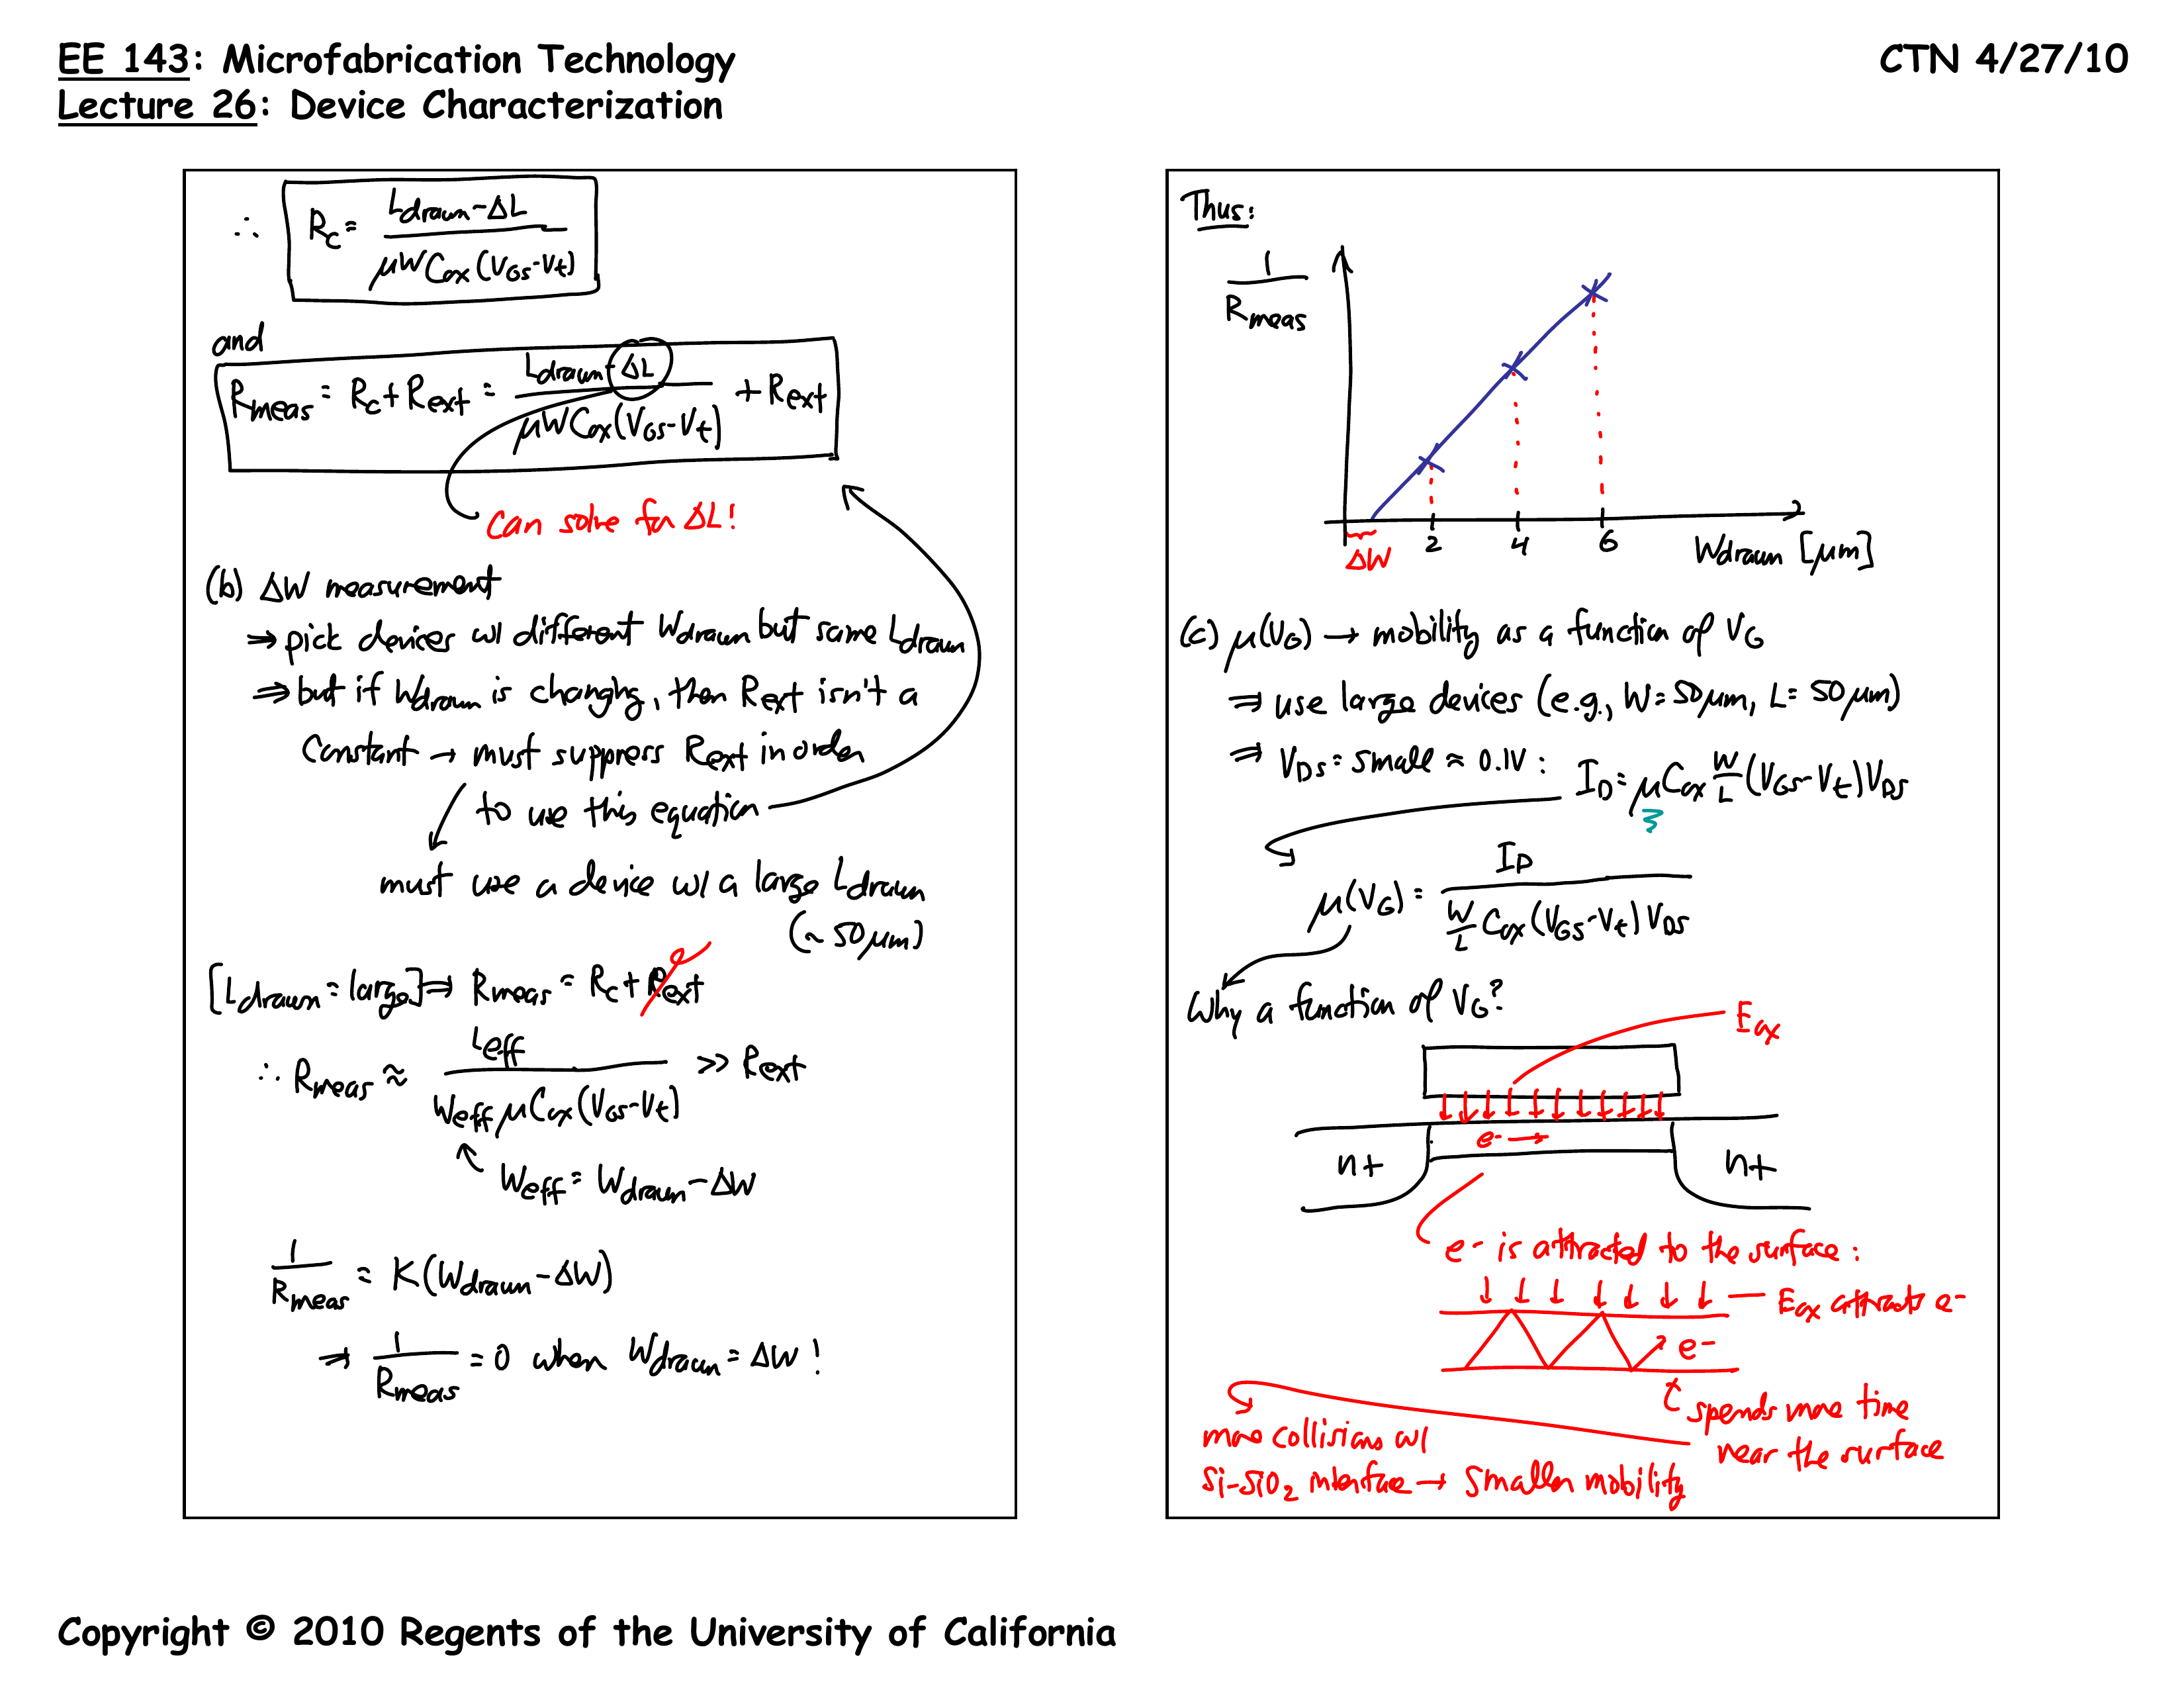 EE 143: Microfabrication Technology
Lecture 26: Device Characterization
CTN 4/27/10
∴ Rc = (Ldrawn - ΔL) / (μWCox(VGS - Vt))
and
Rmeas = Rc + Rext = (Ldrawn - ΔL) / (μWCox(VGS - Vt)) + Rext
can solve for ΔL!
(b) ΔW measurement
⇒ pick devices w/ different Wdrawn but same Ldrawn
⇒ but if Wdrawn is changing, then Rext isn't a
constant → must suppress Rext in order
to use this equation
must use a device w/ a large Ldrawn
(~50μm)
[Ldrawn = large] ⇒ Rmeas = Rc + Rext
∴ Rmeas ≈ Leff / (Weff μCox(VGS - Vt)) >> Rext
Weff = Wdrawn - ΔW
1/Rmeas = K(Wdrawn - ΔW)
⇒ 1/Rmeas = 0 when Wdrawn = ΔW!
Thus:
1/Rmeas
ΔW 2 4 6 Wdrawn [μm]
(c) μ(VG) → mobility as a function of VG
⇒ use large devices (e.g., W = 50μm, L = 50μm)
⇒ VDS = small ≈ 0.1V: ID = μCox W/L (VGS - Vt)VDS
μ(VG) = ID / (W/L Cox(VGS - Vt)VDS)
Why a function of VG?
Eox
e- →
n+ n+
e- is attracted to the surface:
Eox attracts e-
e-
spends more time
near the surface
more collisions w/
Si-SiO2 interface → smaller mobility
Copyright © 2010 Regents of the University of California